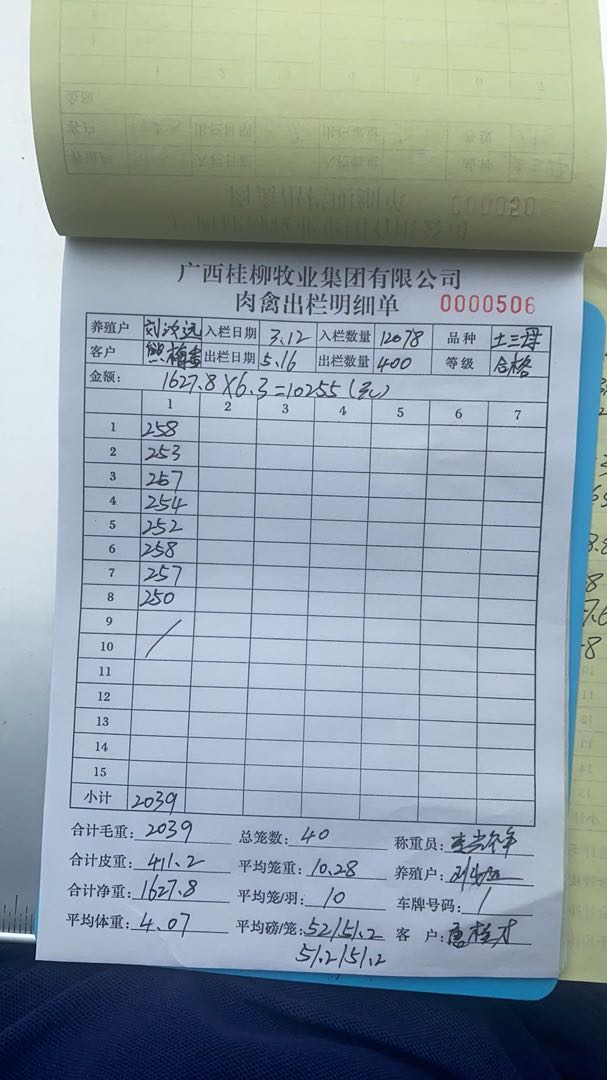 广西桂柳牧业集团有限公司
肉禽出栏明细单 0000506
养殖户 入栏日期 3.12 入栏数量 12078 品种 土三母
客户 出栏日期 5.16 出栏数量 400 等级 合格
金额: 1627.8×6.3=10255(元)
1 2 3 4 5 6 7
1 258
2 253
3 257
4 254
5 252
6 258
7 257
8 250
9
10
11
12
13
14
15
小计 2039
合计毛重: 2039 总笼数: 40 称重员:
合计皮重: 411.2 平均笼重: 10.28 养殖户:
合计净重: 1627.8 平均笼/羽: 10 车牌号码: /
平均体重: 4.07 平均磅/笼: 52/51.2 客 户:
51.2/51.2